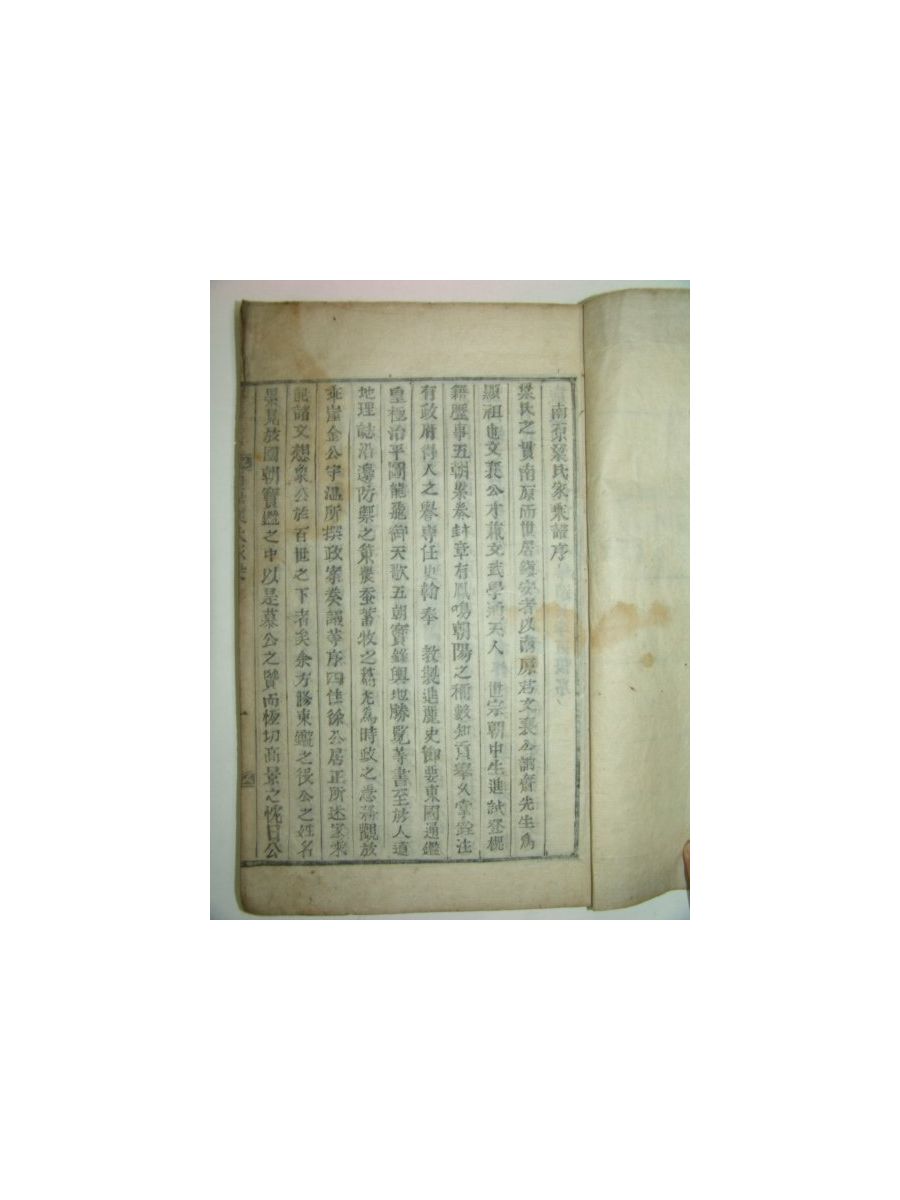 南原梁氏家乘譜序
梁氏之貫南原而世居者以南原君文襄公訥齋先生爲
顯祖也文襄公才兼文武學通天人世宗朝中生進試登槐
籍歷事五朝累奏封章有鳳鳴朝陽之稱數知貢擧久掌銓注
有政府得人之譽專任史翰奉 教製進麗史節要東國通鑑
皇極治平圖龍飛御天歌五朝寶鑑輿地勝覽等書至於人道
地理誌沿邊防禦之策農蚕蓄牧之尤爲時政之觀放
乖崖金公守溫所撰政案奏議等序四佳徐公居正所述家乘
記諸文想像公於百世之下者矣余方勝東鑑之役公之姓名
累見於國朝寶鑑之中以是慕公之賢而極切高景之忱日公